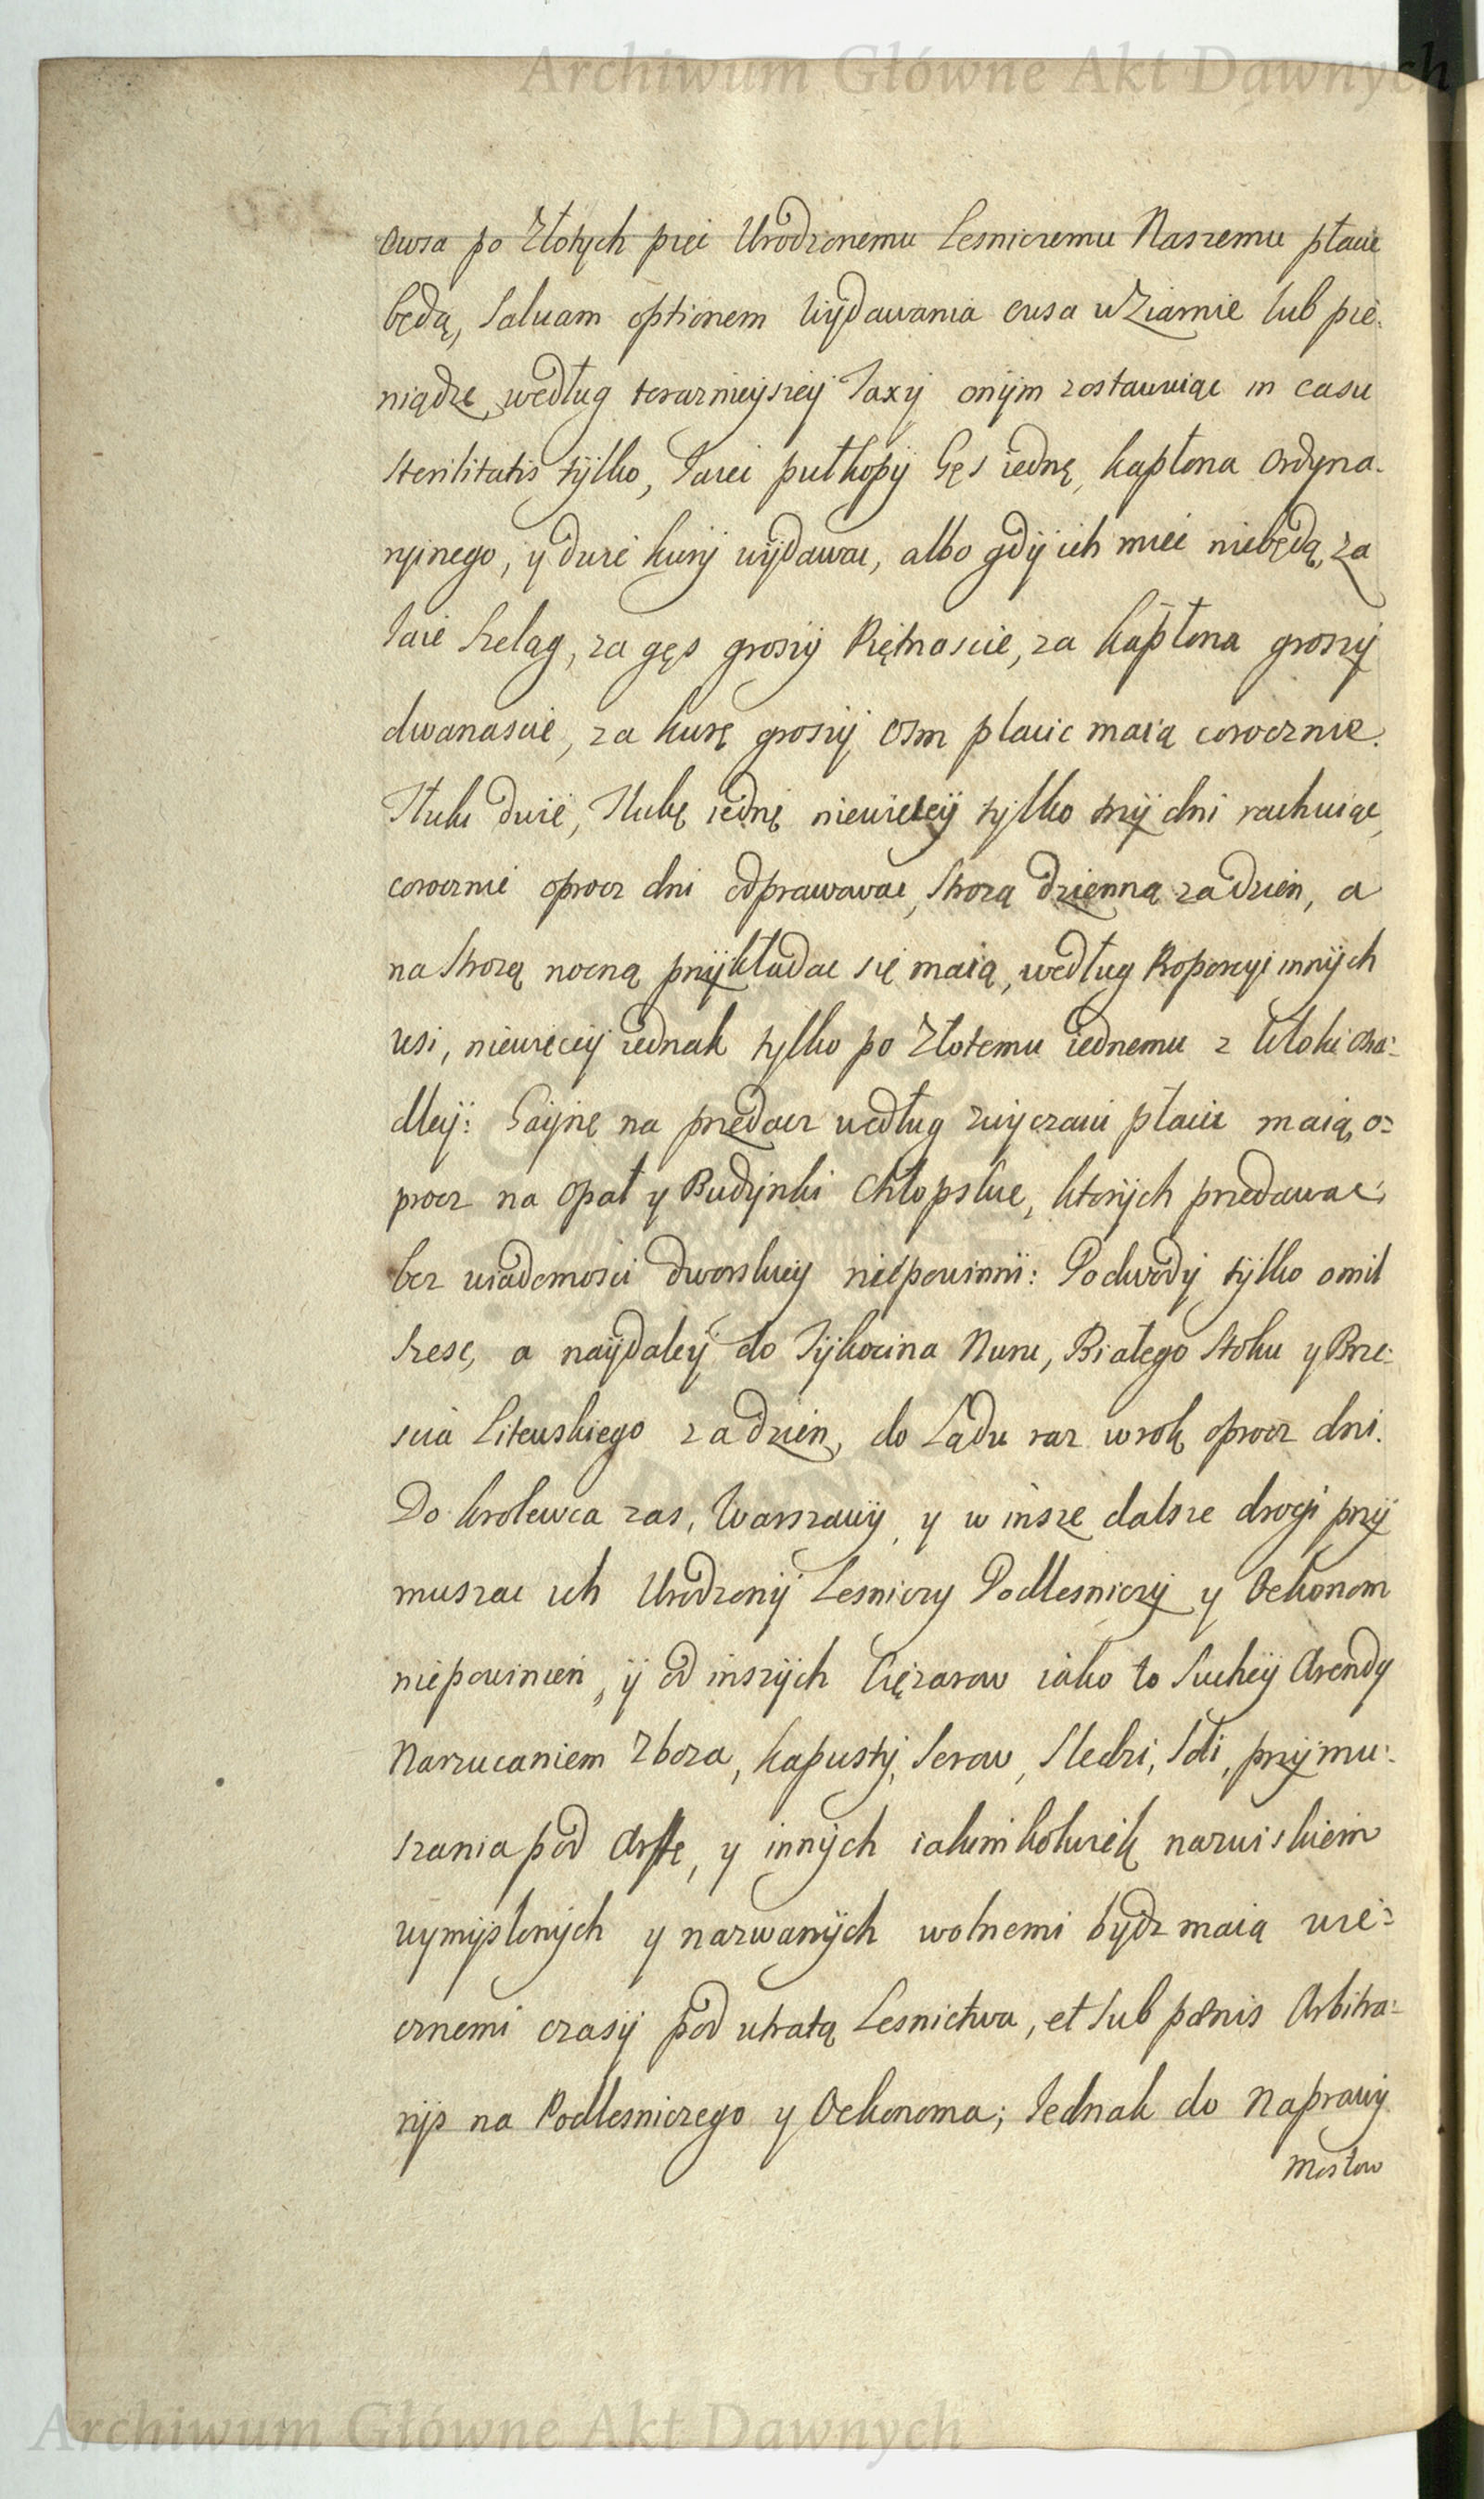 Archiwum Główne Akt Dawnych
owsa po Złotych pięć Urodzonemu Lesniczemu Naszemu płacić
będą, Salvam optionem wydawania owsa w Ziarnie lub pie:
niądze według teraznieyszey Taxy onym zostawuiąc in casu
sterilitatis tylko, Jaiec pułkopy Gęs iednę, kapłona Ordyna-
ryinego, y dwie kury wydawac, albo gdy ich miec niebędą, za
Jaie szelag, za gęs groszy Piętnascie, za kapłona groszy
dwanascie, za kurę groszy osm placic maią corocznie.
Tłuki dwie, Tłukę iednę niewięcey tylko trzy dni rachuiąc,
corocznie oprocz dni odprawowac, Strozą dzienną za dzien, a
na Strozą nocną przykładac się maią, według Proporcyi innych
wsi, niewięcey iednak tylko po Złotemu iednemu z Włoki osia:
dłey: Gaynę na przedaz według zwyczaiu płacic maią, o:
procz na opał y Budynki Chłopskie, ktorych przedawac
bez wiadomosci dworskiey niepowinni: Podwody tylko o mil
szesc, a naydaley do Tykocina Nura, Białego Stoku y Brze:
scia Litewskiego za dzien, do Lądu raz w rok oprocz dni.
Do krolewca zas, Warszawy, y w insze dalsze drogi przy
muszac ich Urodzony Lesniczy Podlesniczy y Oekonom
niepowinien, y od inszych Cięzarow iako to Suchey Arendy
Narzucaniem Zboza, kapusty, Serow, Sledzi, Soli, przymu:
szania pod Arszt, y innych iakimkolwiek nazwiskiem
wymyslonych y nazwanych wolnemi bydz maią wie:
cznemi czasy pod utratą Lesnictwa, et sub pœnis Arbitra:
rys na Podlesniczego y Oekonoma; Jednak do Naprawy
Mostow
Archiwum Główne Akt Dawnych